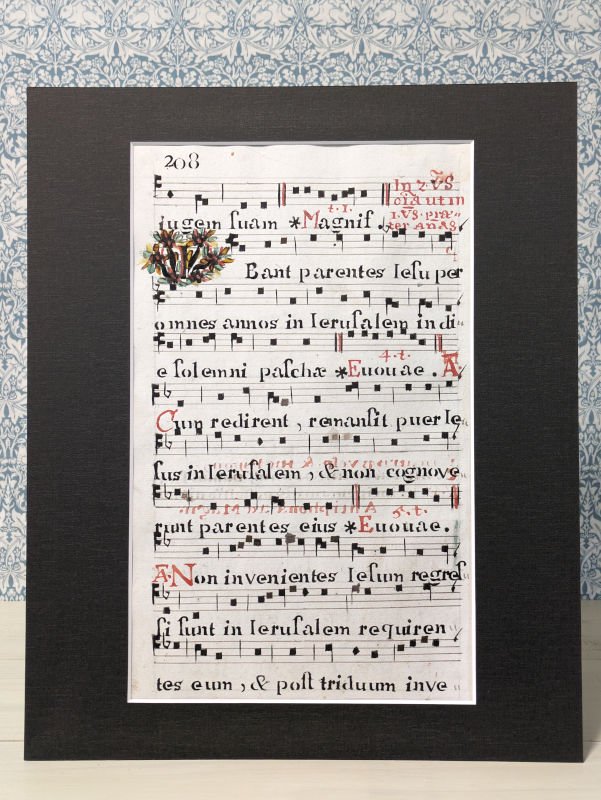 208
In 2. VS
ciã ut in
ſugem ſuam *Magnif. t. 1. 1. VS. præ-
ter Anãs
Eant parentes Ieſu per
omnes annos in Ieruſalem in di-
e ſolemni paſchæ *Euouae. 4. t. A
Cum redirent, remanſit puer Ie-
ſus in Ieruſalem, & non cognove-
runt parentes eius *Euouae. 5. t.
A. Non invenientes Ieſum regreſ-
ſi ſunt in Ieruſalem requiren-
tes eum, & poſt triduum inve-